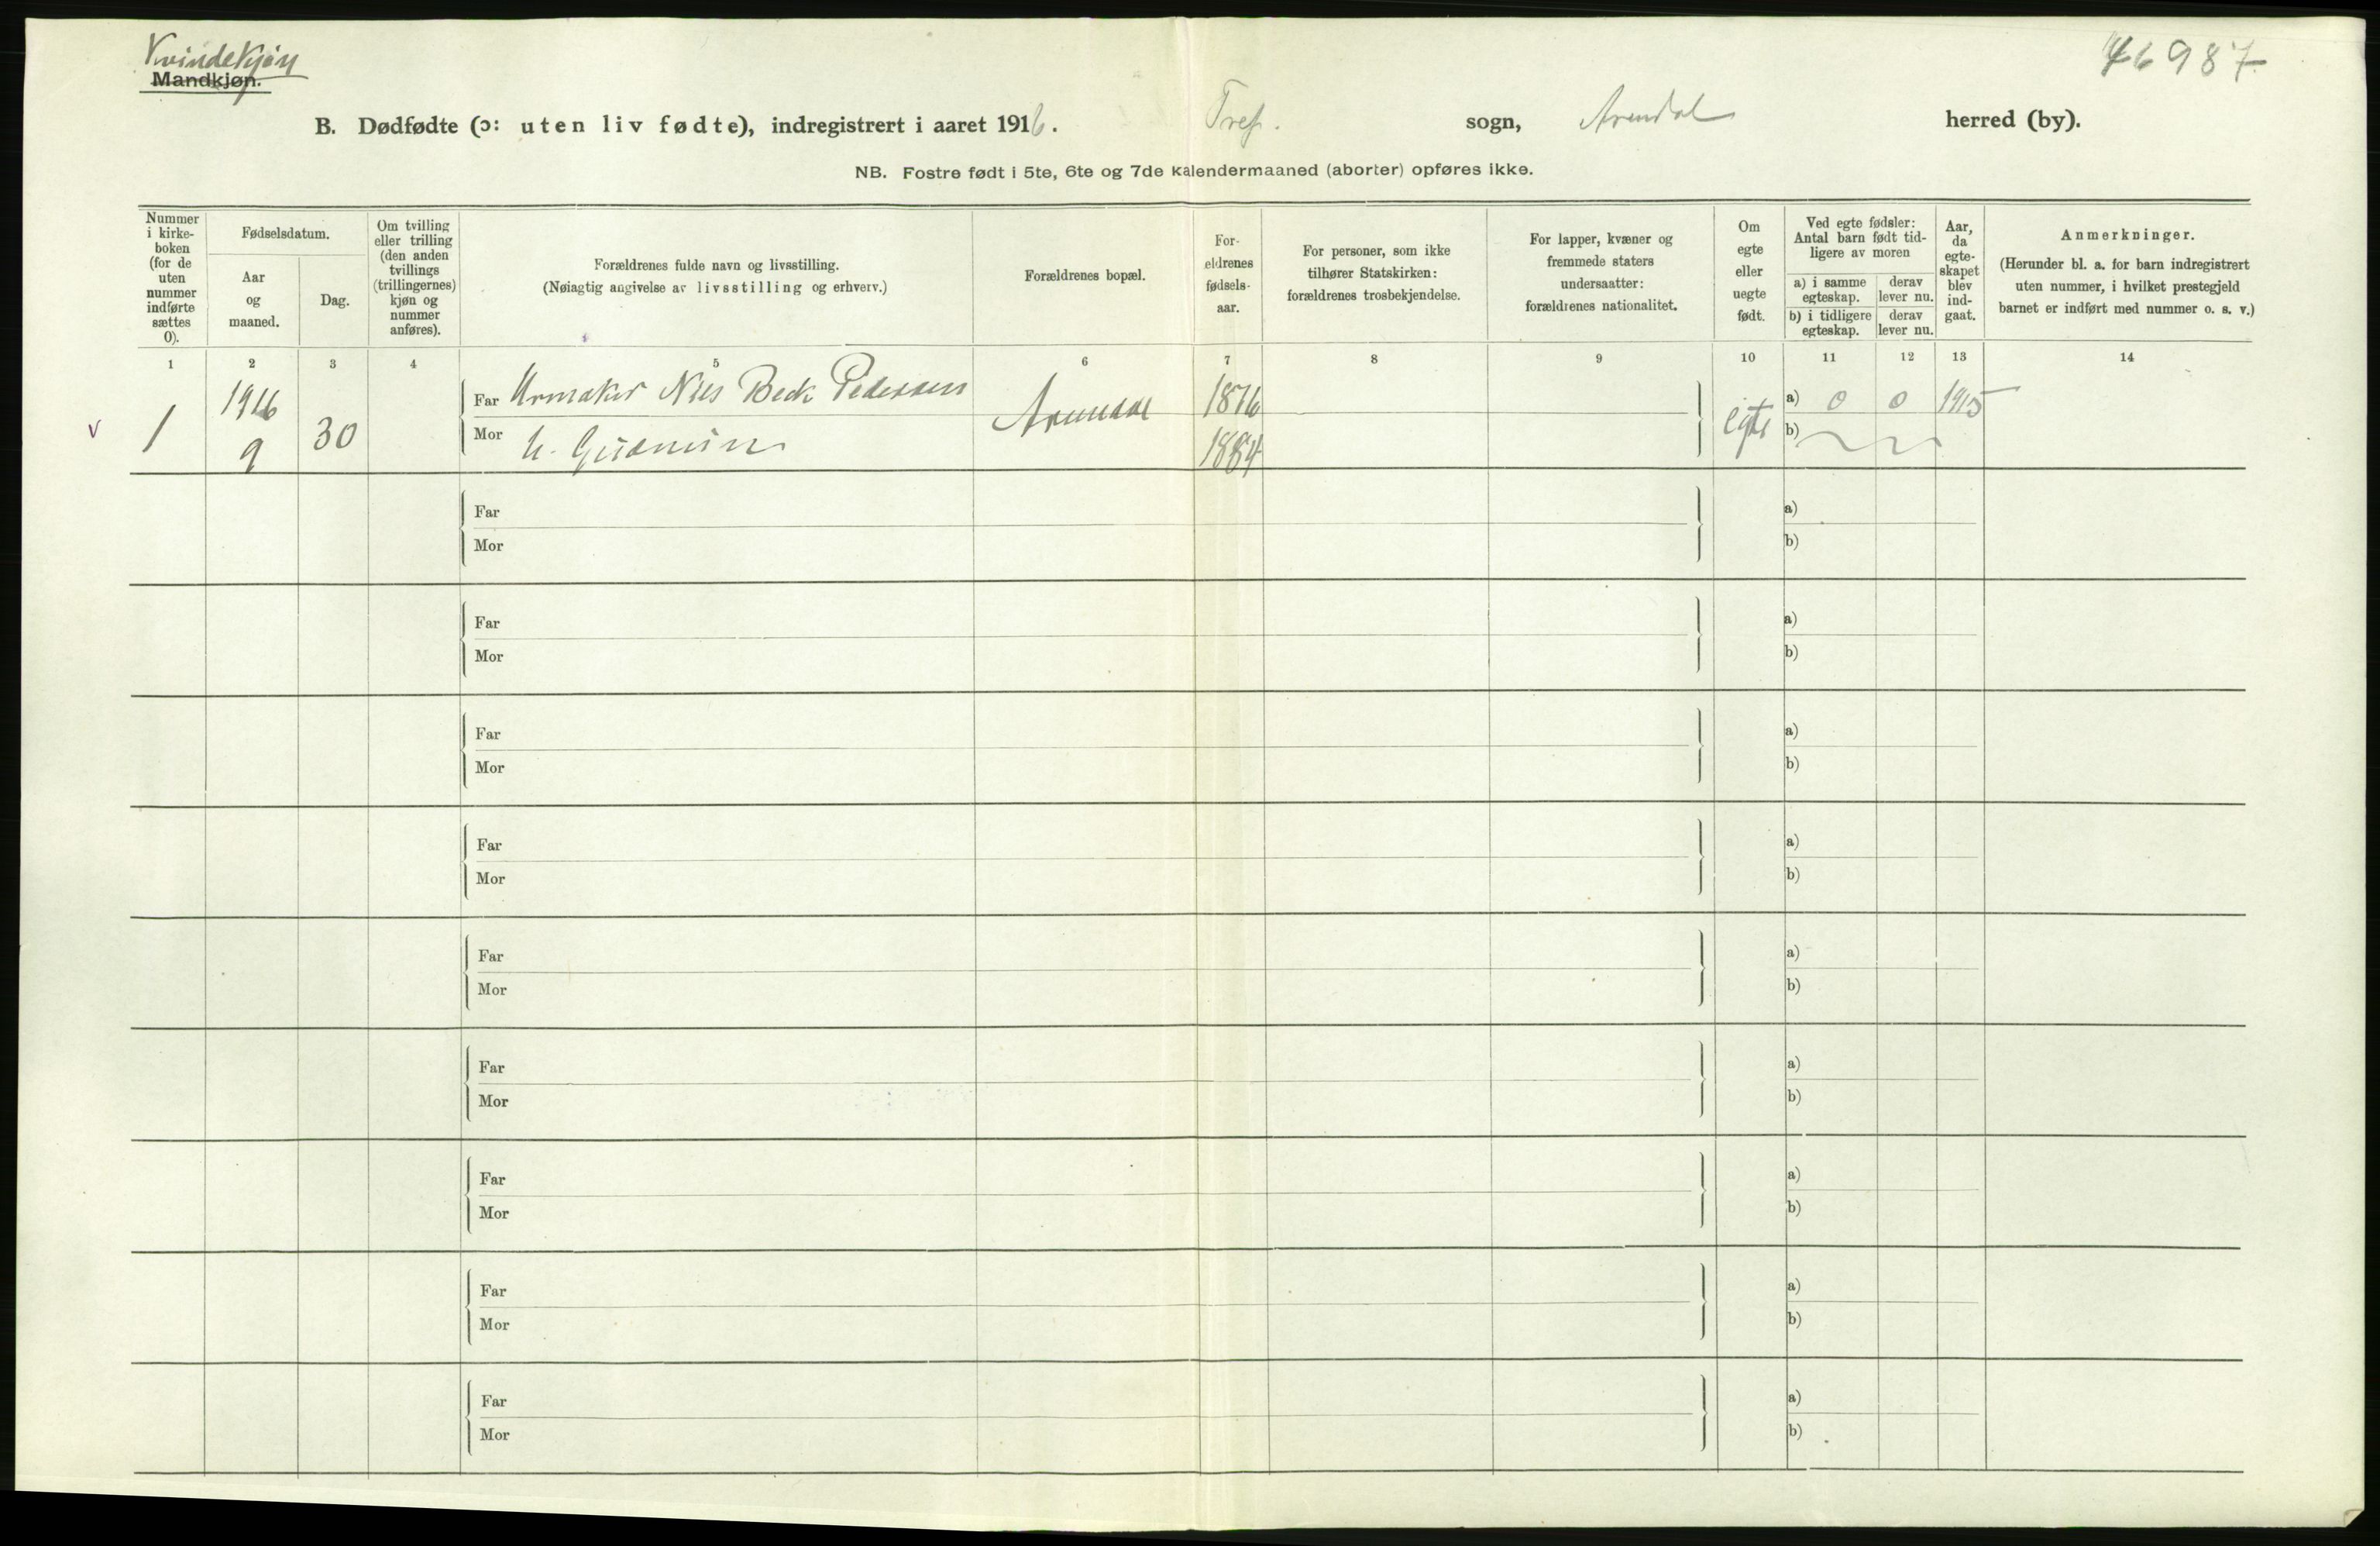 Kvindekjøn
Mandkjøn.
46987
B. Dødfødte (ɔ: uten liv fødte), indregistrert i aaret 1916. Tref. sogn, Arendal herred (by).
NB. Fostre født i 5te, 6te og 7de kalendermaaned (aborter) opføres ikke.
Nummer i kirke-boken (for de uten nummer indførte sættes 0).
Fødselsdatum.
Aar og maaned.
Dag.
Om tvilling eller trilling (den anden tvillings (trillingernes) kjøn og nummer anføres).
Forældrenes fulde navn og livsstilling.
(Nøiagtig angivelse av livsstilling og erhverv.)
Forældrenes bopæl.
For-eldrenes fødsels-aar.
For personer, som ikke tilhører Statskirken: forældrenes trosbekjendelse.
For lapper, kvæner og fremmede staters undersaatter: forældrenes nationalitet.
Om egte eller uegte født.
Ved egte fødsler: Antal barn født tid-ligere av moren
a) i samme egteskap.
derav lever nu.
b) i tidligere egteskap.
derav lever nu.
Aar, da egte-skapet blev ind-gaat.
Anmerkninger.
(Herunder bl. a. for barn indregistrert uten nummer, i hvilket prestegjeld barnet er indført med nummer o. s. v.)
1 2 3 4 5 6 7 8 9 10 11 12 13 14
v 1 1916 9 30
Far Urmaker Nils Beck Pedersen Arendal 1876 egte a) 0 0 1915
Mor h. 1884 b)
Far a)
Mor b)
Far a)
Mor b)
Far a)
Mor b)
Far a)
Mor b)
Far a)
Mor b)
Far a)
Mor b)
Far a)
Mor b)
Far a)
Mor b)
Far a)
Mor b)